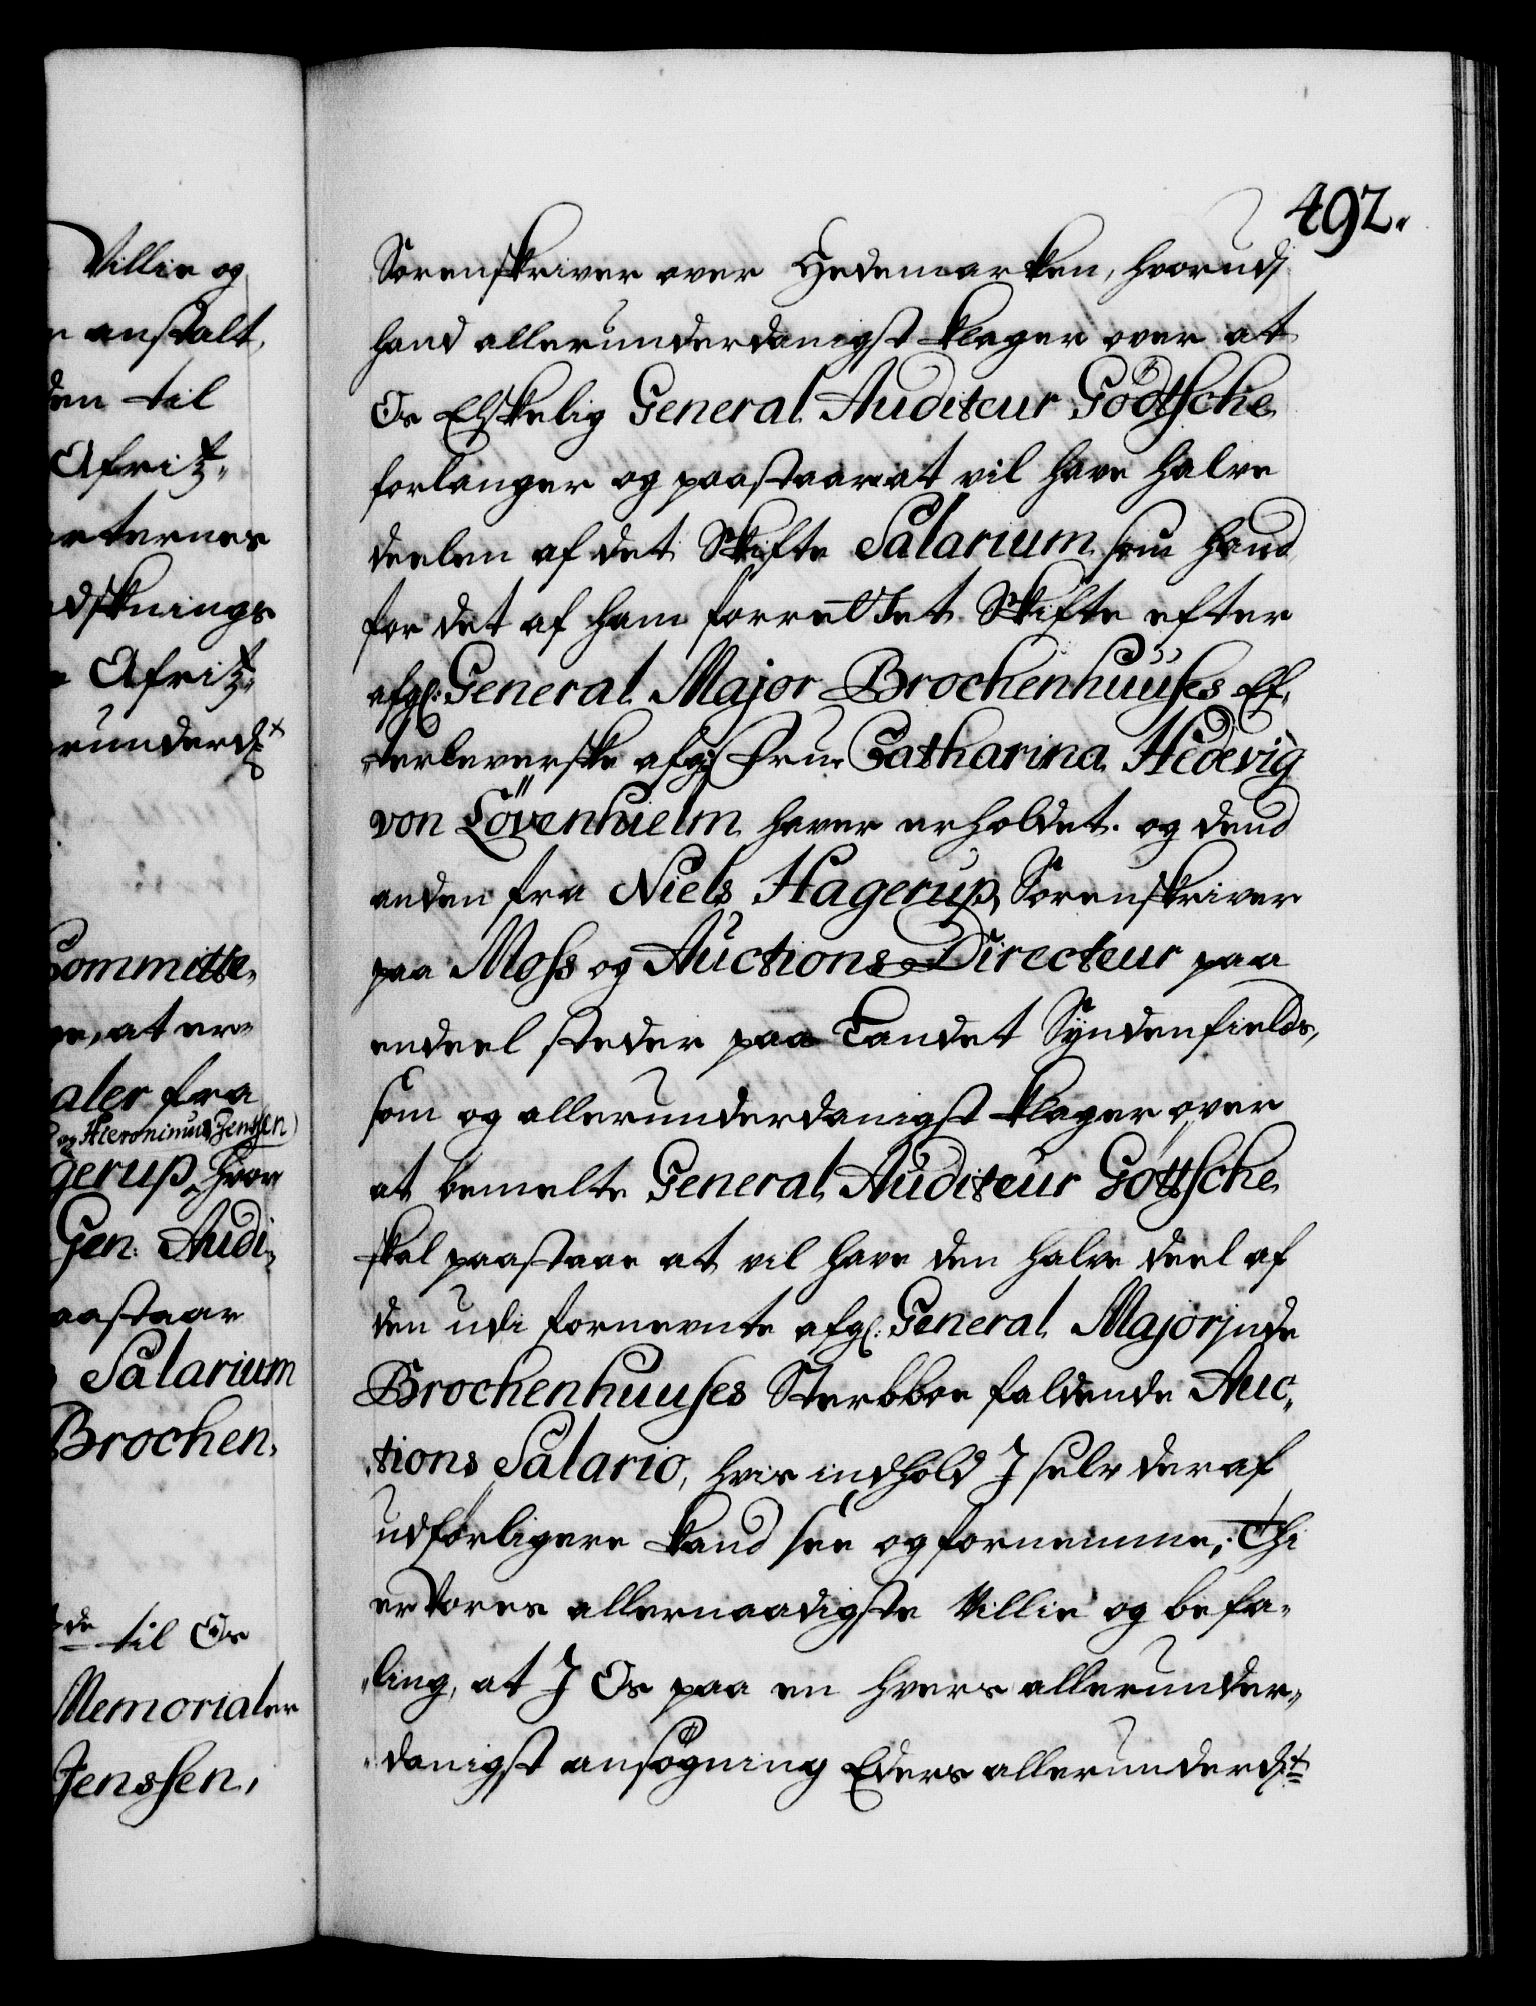 Villie og
anstalt,
den til
Afrit„
eternes
dskrnings
Afrit„
runderdt
Committe„
ge, at er„
aler fra
og Hieronimus Jensen)
gerup, hvor
Gen: Audi„
aastaar
Salarium
Brochen„
de til Os
Memorialer
Jenssen,
492.
Sorenskriver over Hedemarken, hvorudj
hand allerunderdanigst klager over at
Os Elskelig General Auditeur Gödtsche
forlanger og paastaar at vil have halve
deelen af det Skifte Salarium som hand
for det af ham forrettet Skifte efter
afgl: General Major Brochenhuuses Ef„
terleverske afgl: Frue Catharina Hedevig
von Lövenhielm haver erholdet. og dend
anden fra Niels Hagerup, Sorenskriver
paa Moss og Auctions Directeur paa
endeel steder paa Landet Syndenfields,
som og allerunderdanigst klager over
at bemelte General Auditeur Göttsche
skal paastaae at vil have den halve deel af
den udi fornevnte afgl: General Majorinde
Brochenhuuses Sterbboe faldende Auc„
tions Salario, hvis indhold J selv deraf
udførligere kand see og fornemme; Thi
er Vores allernaadigste Villie og befa„
„ling, at J Os paa en hvers allerunder„
„danigst ansøgning Eders allerunderdt